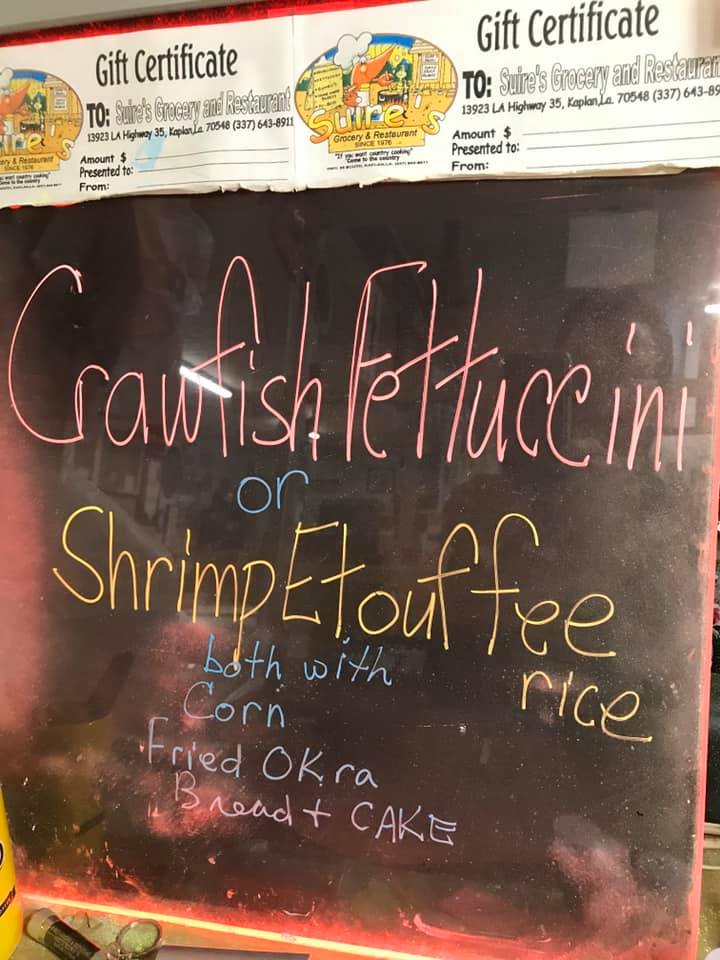 Gift Certificate
TO: Suire's Grocery and Restaurant
13923 LA Highway 35, Kaplan,La. 70548 (337) 643-8911
Amount $
Presented to:
From:
Grocery & Restaurant
SINCE 1976
Gift Certificate
TO: Suire's Grocery and Restauran
13923 LA Highway 35, Kaplan,La. 70548 (337) 643-89
Amount $
Presented to:
From:
Suire's
Grocery & Restaurant
SINCE 1976
"If you want country cooking"
"Come to the country"
Crawfish Fettuccini
or
Shrimp Etouffee
rice
both with
Corn
Fried Okra
Bread + CAKE